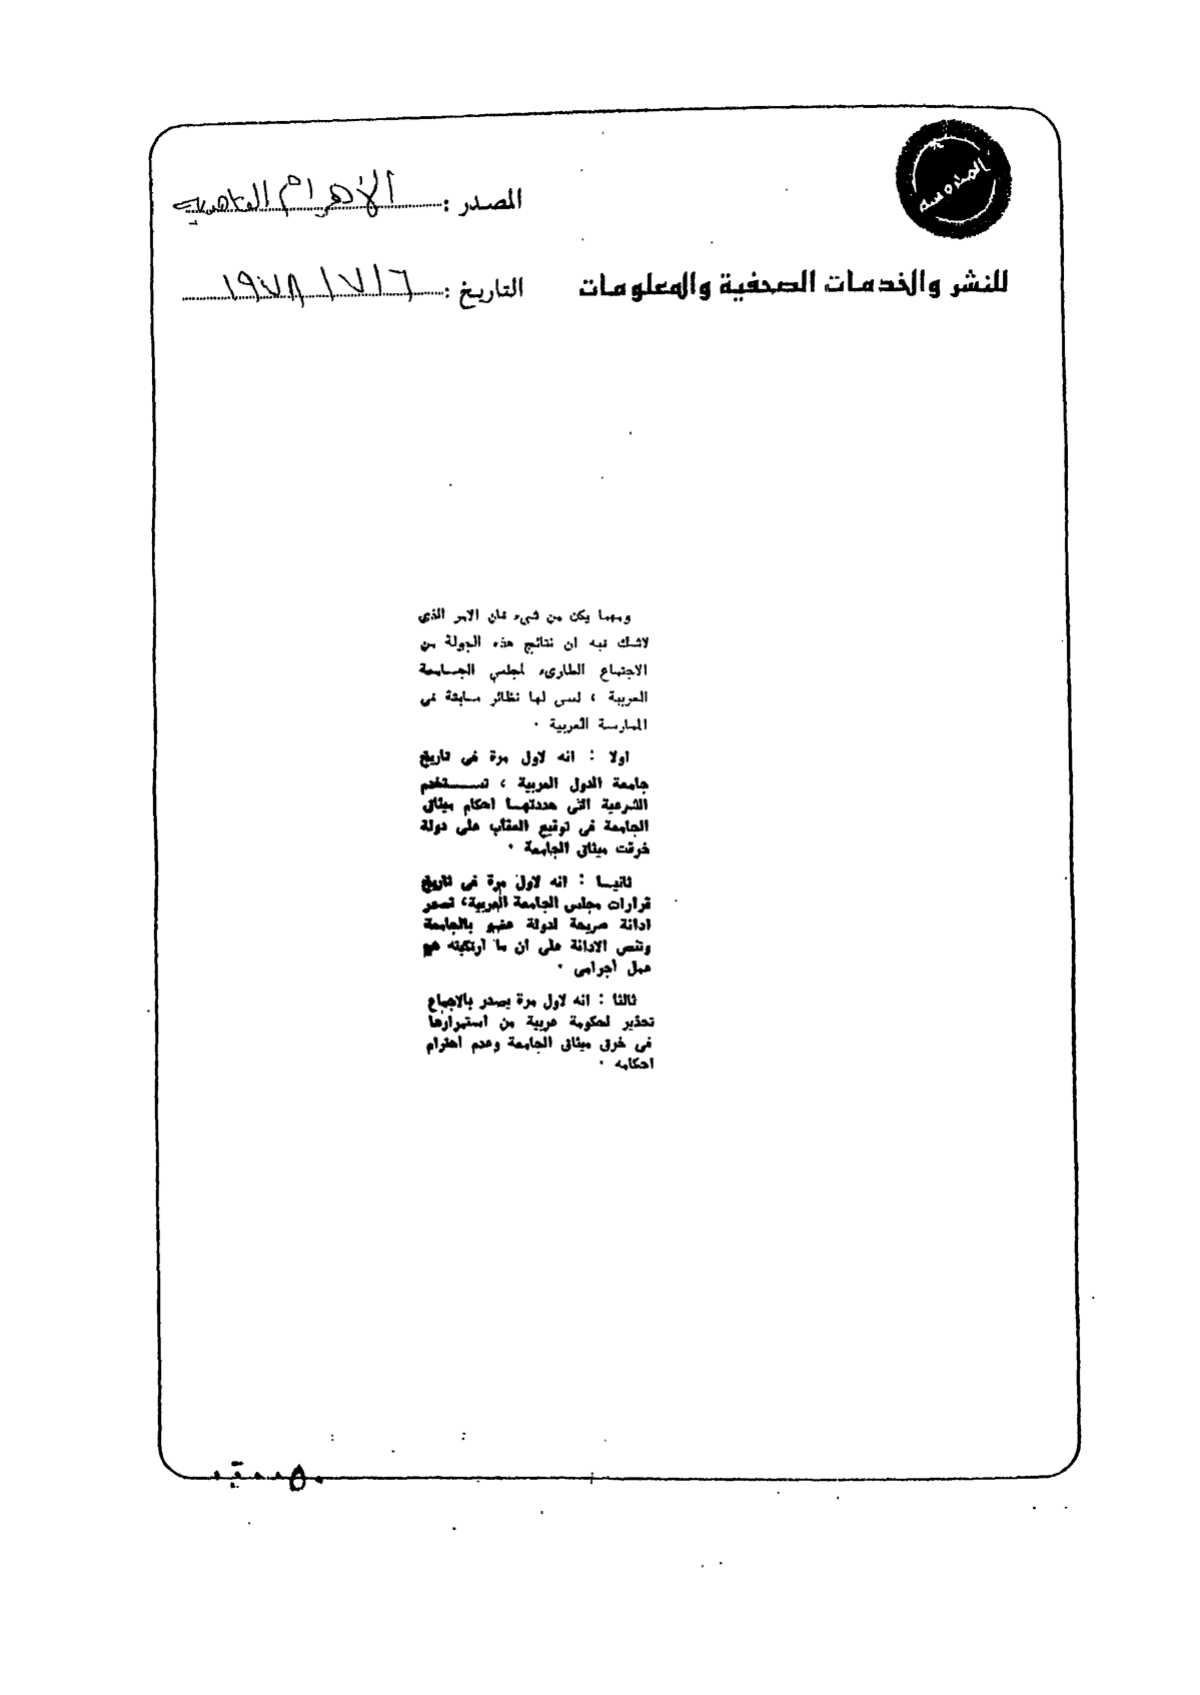 المصدر : الأهرام القاهرية
للنشر والخدمات الصحفية والمعلومات
التاريخ : ١٩٧٨/٧/٦
ومهما يكن من شيء فان الامر الذى
لاشك فيه ان نتائج هذه الجولة من
الاجتماع الطارىء لمجلس الجامعة
العربية ، ليس لها نظائر سابقة فى
الممارسة العربية .
اولا : انه لاول مرة فى تاريخ
جامعة الدول العربية ، تستخدم
الشرعية التى حددتها احكام ميثاق
الجامعة فى توقيع العقاب على دولة
خرقت ميثاق الجامعة .
ثانيا : انه لاول مرة فى تاريخ
قرارات مجلس الجامعة العربية، تصدر
ادانة صريحة لدولة عضو بالجامعة
وتنص الادانة على ان ما ارتكبته هو
عمل اجرامى .
ثالثا : انه لاول مرة يصدر بالاجماع
تحذير لحكومة عربية من استمرارها
فى خرق ميثاق الجامعة وعدم احترام
احكامه .